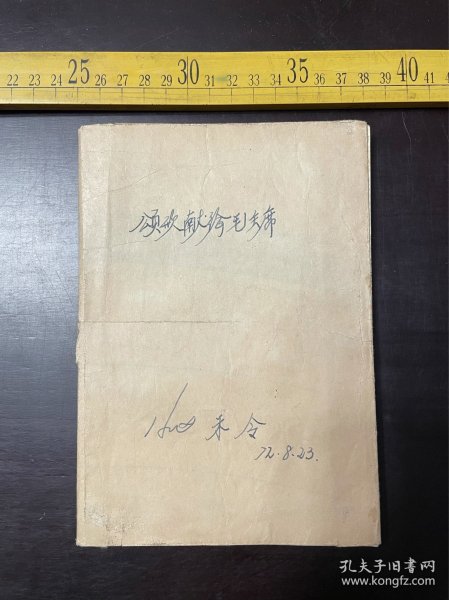 22 23 24 25 26 27 28 29 30 31 32 33 34 35 36 37 38 39 40 41
颂歌献给毛主席
来令
72.8.23.
孔夫子旧书网
www.kongfz.com